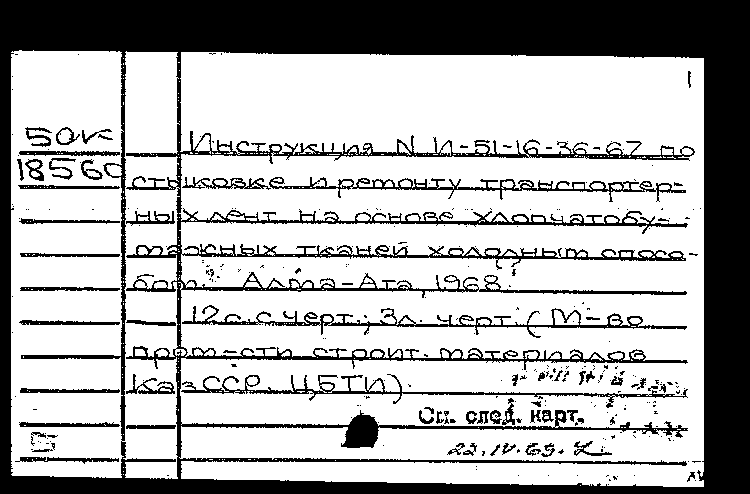 1
50к
18560
Инструкция N И-51-16-36-67 по
стыковке и ремонту транспортер-
ных лент на основе хлопчатобу-
мажных тканей холодным спосо-
бом. Алма-Ата, 1968.
12с. с черт.; 3л. черт. (М-во
пром-сти строит. материалов
КазССР. ЦБТИ).
См. след. карт.
22.IV.69.